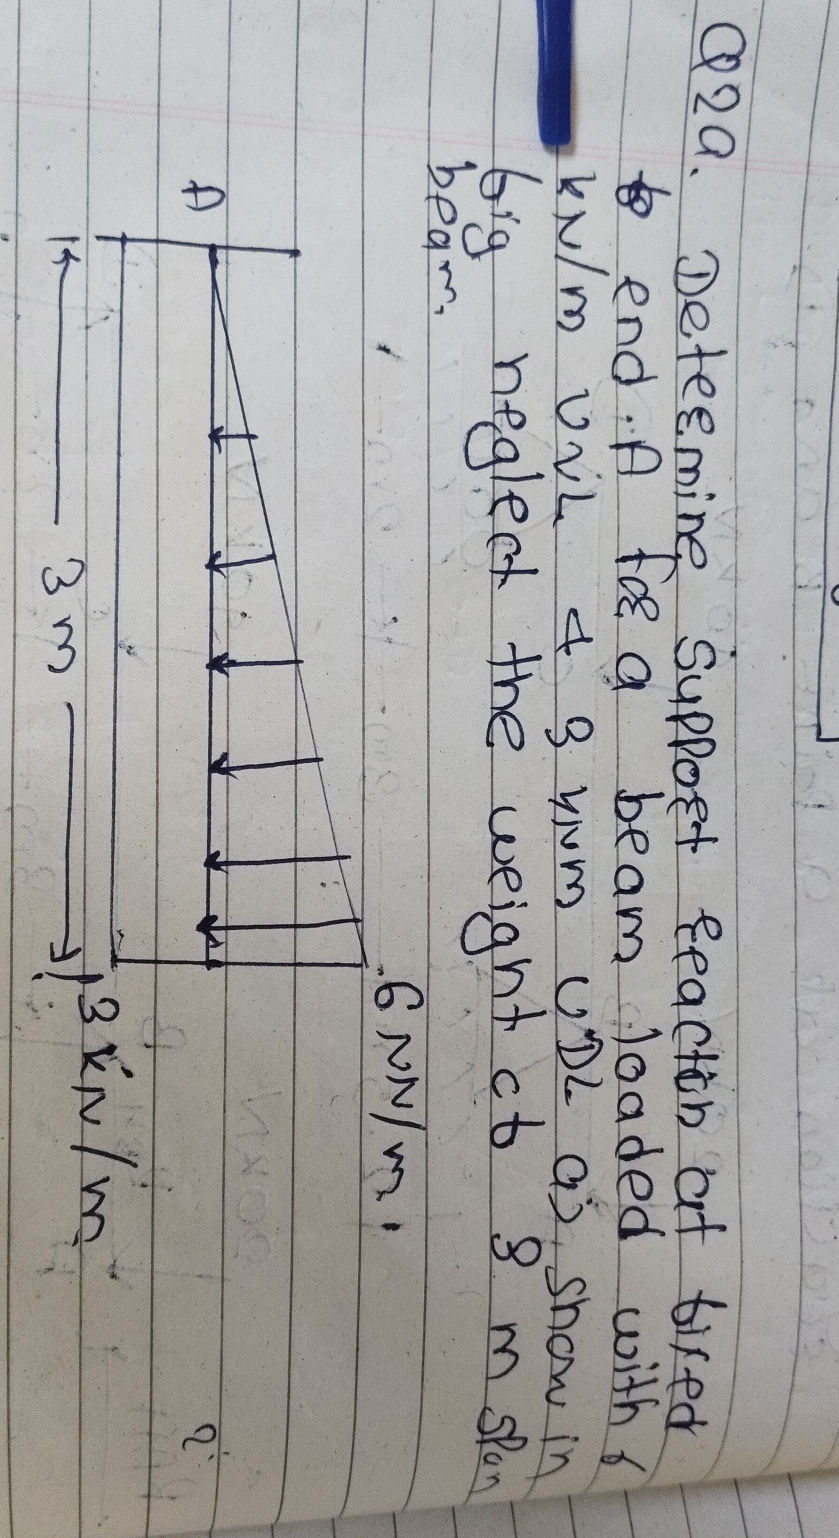 Q2a. Determine Support reaction at fixed
end A for a beam loaded with 6
kN/m UVL & 3 kNm UDL as show in
fig neglect the weight of 3 m span
beam.
A
6 kN/m.
3 m
3 kN/m
?